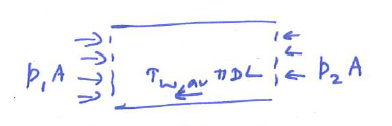 p₁A
τw,av πDL
p₂A